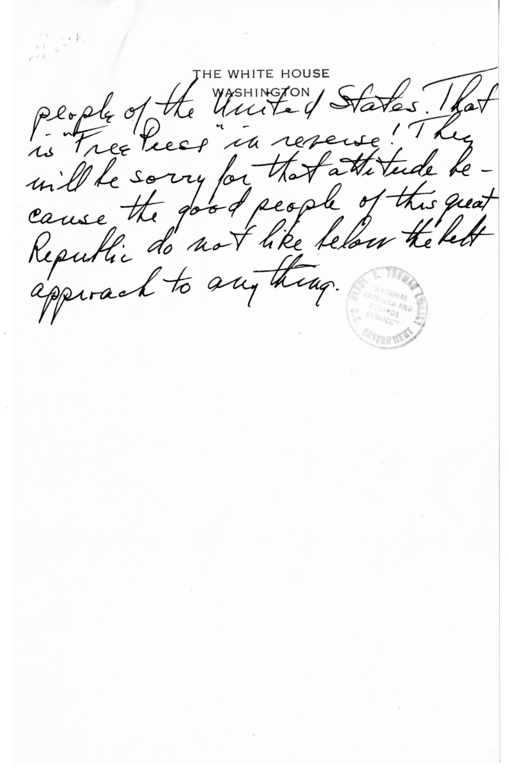 THE WHITE HOUSE
WASHINGTON
people of the United States. That
is "Free Press" in reverse! They
will be sorry for that attitude be-
cause the good people of this great
Republic do not like below the belt
approach to any thing.
HARRY S. TRUMAN LIBRARY
"NATIONAL
ARCHIVES AND
RECORDS
SERVICE"
U.S. GOVERNMENT